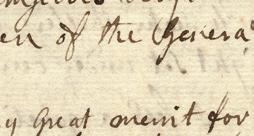 en of the Genera
y great merit for